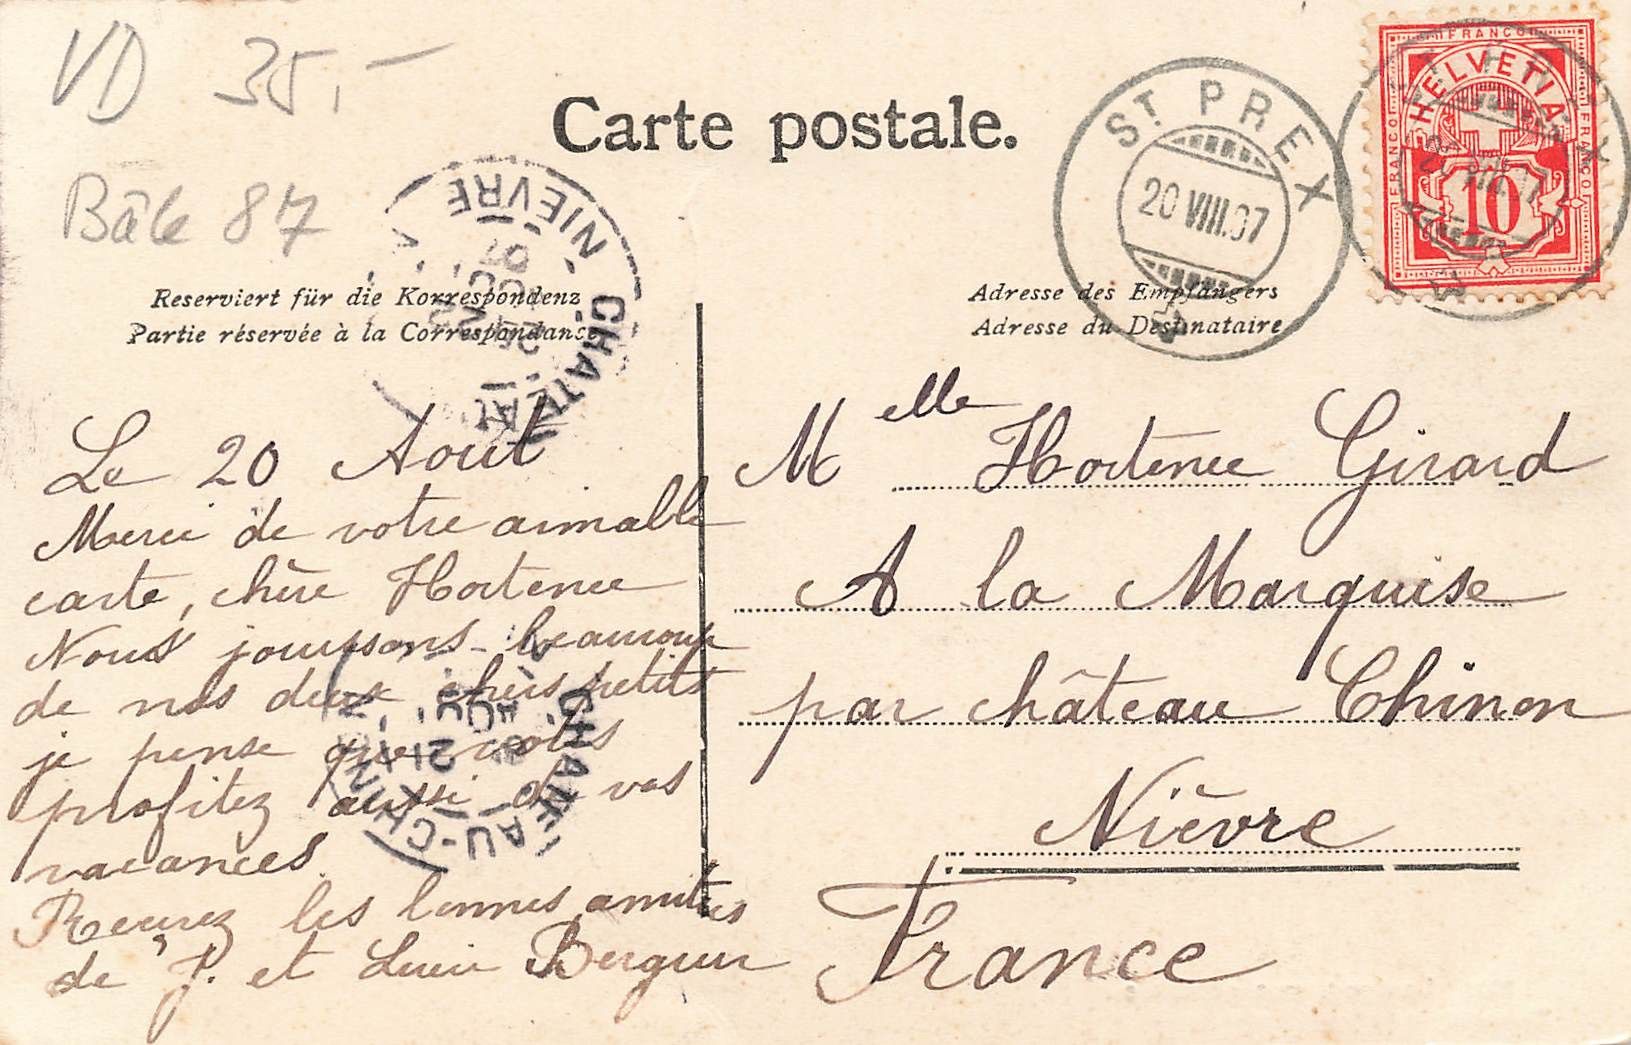 VD 35,-
Bâle 87
Carte postale.
ST PREX
20 VIII.07
HELVETIA
FRANCO
FRANCO
FRANCO
10
NIEVRE
CHATEAU
Reserviert für die Korrespondenz
Partie réservée à la Correspondance
Adresse des Empfängers
Adresse du Destinataire
Le 20 Aout
Merci de votre aimable
carte, chère Hortence
Nous jouissons beaucoup
de nos deux chers petits
je pense que vous
profitez aussi de vos
vacances.
Recevez les bonnes amitiés
de J. et Lucie
CHATEAU-CHINON
Melle Hortence Girard
A la Marquise
par château Chinon
Nièvre
France